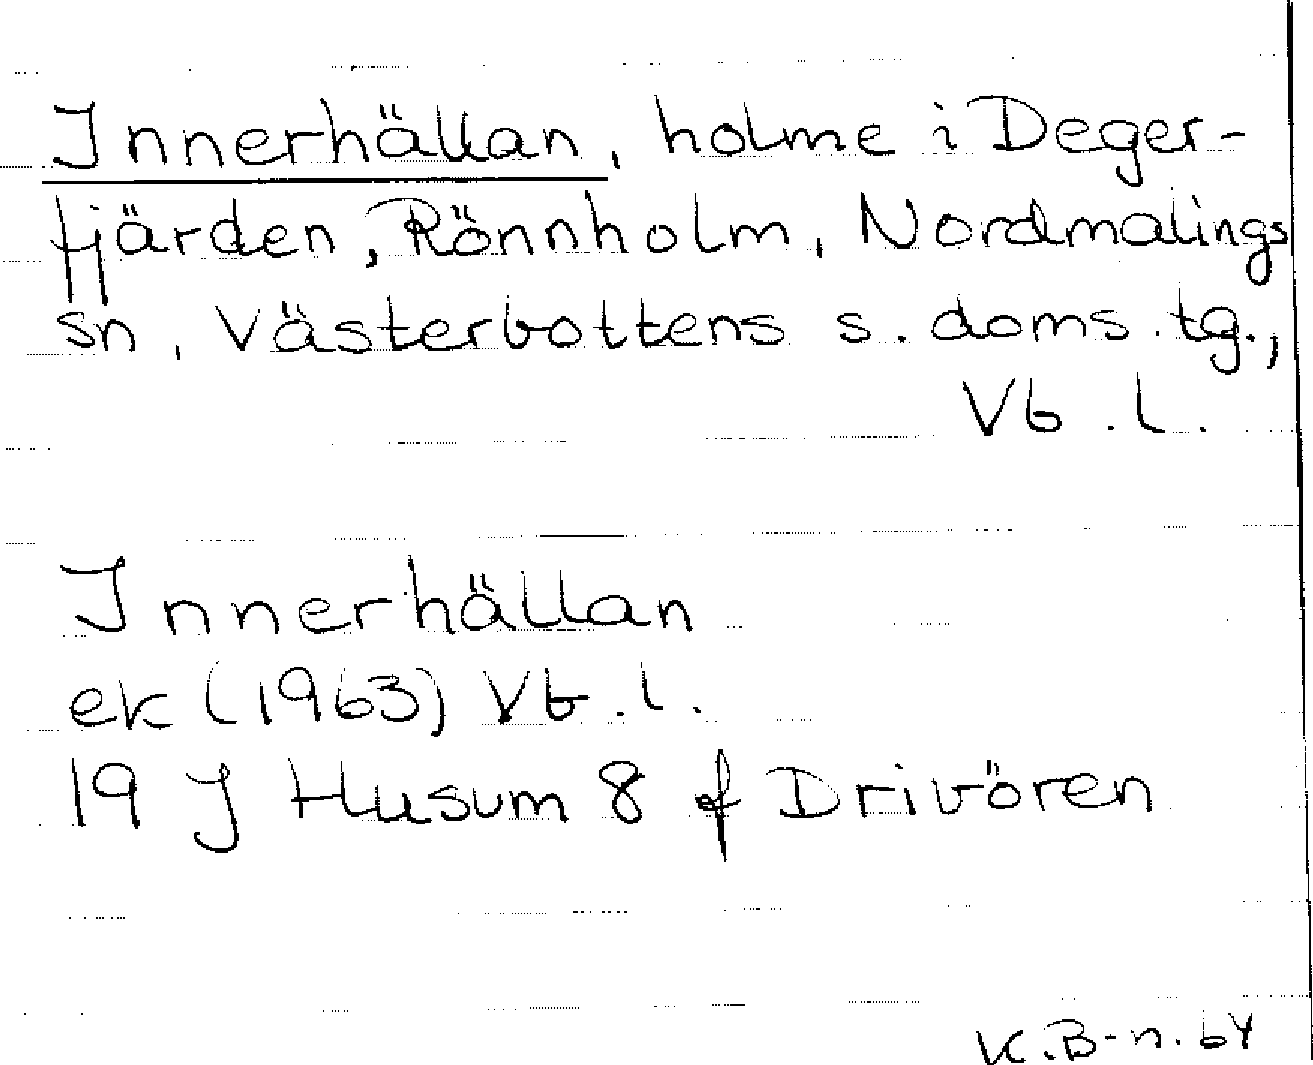 Innerhällan, holme i Deger-
fjärden, Rönnholm, Nordmalings
sn, Västerbottens s. doms. tg.,
Vb. l.
Innerhällan
ek (1963) Vb. l.
19 J Husum 8 f Drivören
K. B-n. 64